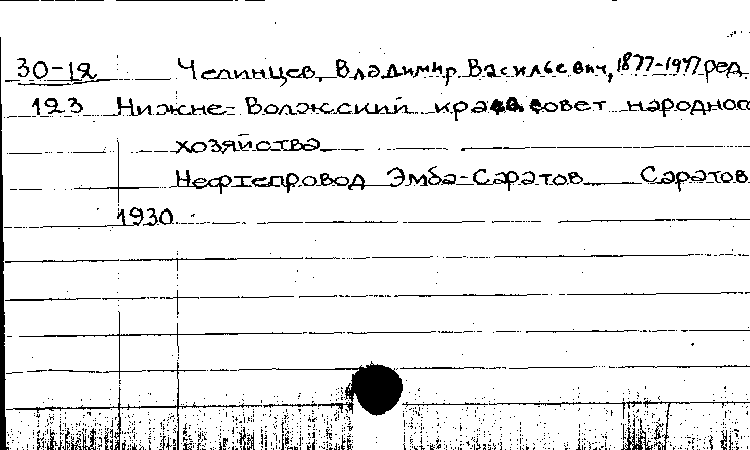 30-12 Челинцев, Владимир Васильевич, 1877-1947 ред
123 Нижне-Волжский крайсовет народног
хозяйства
Нефтепровод Эмба-Саратов Саратов
1930